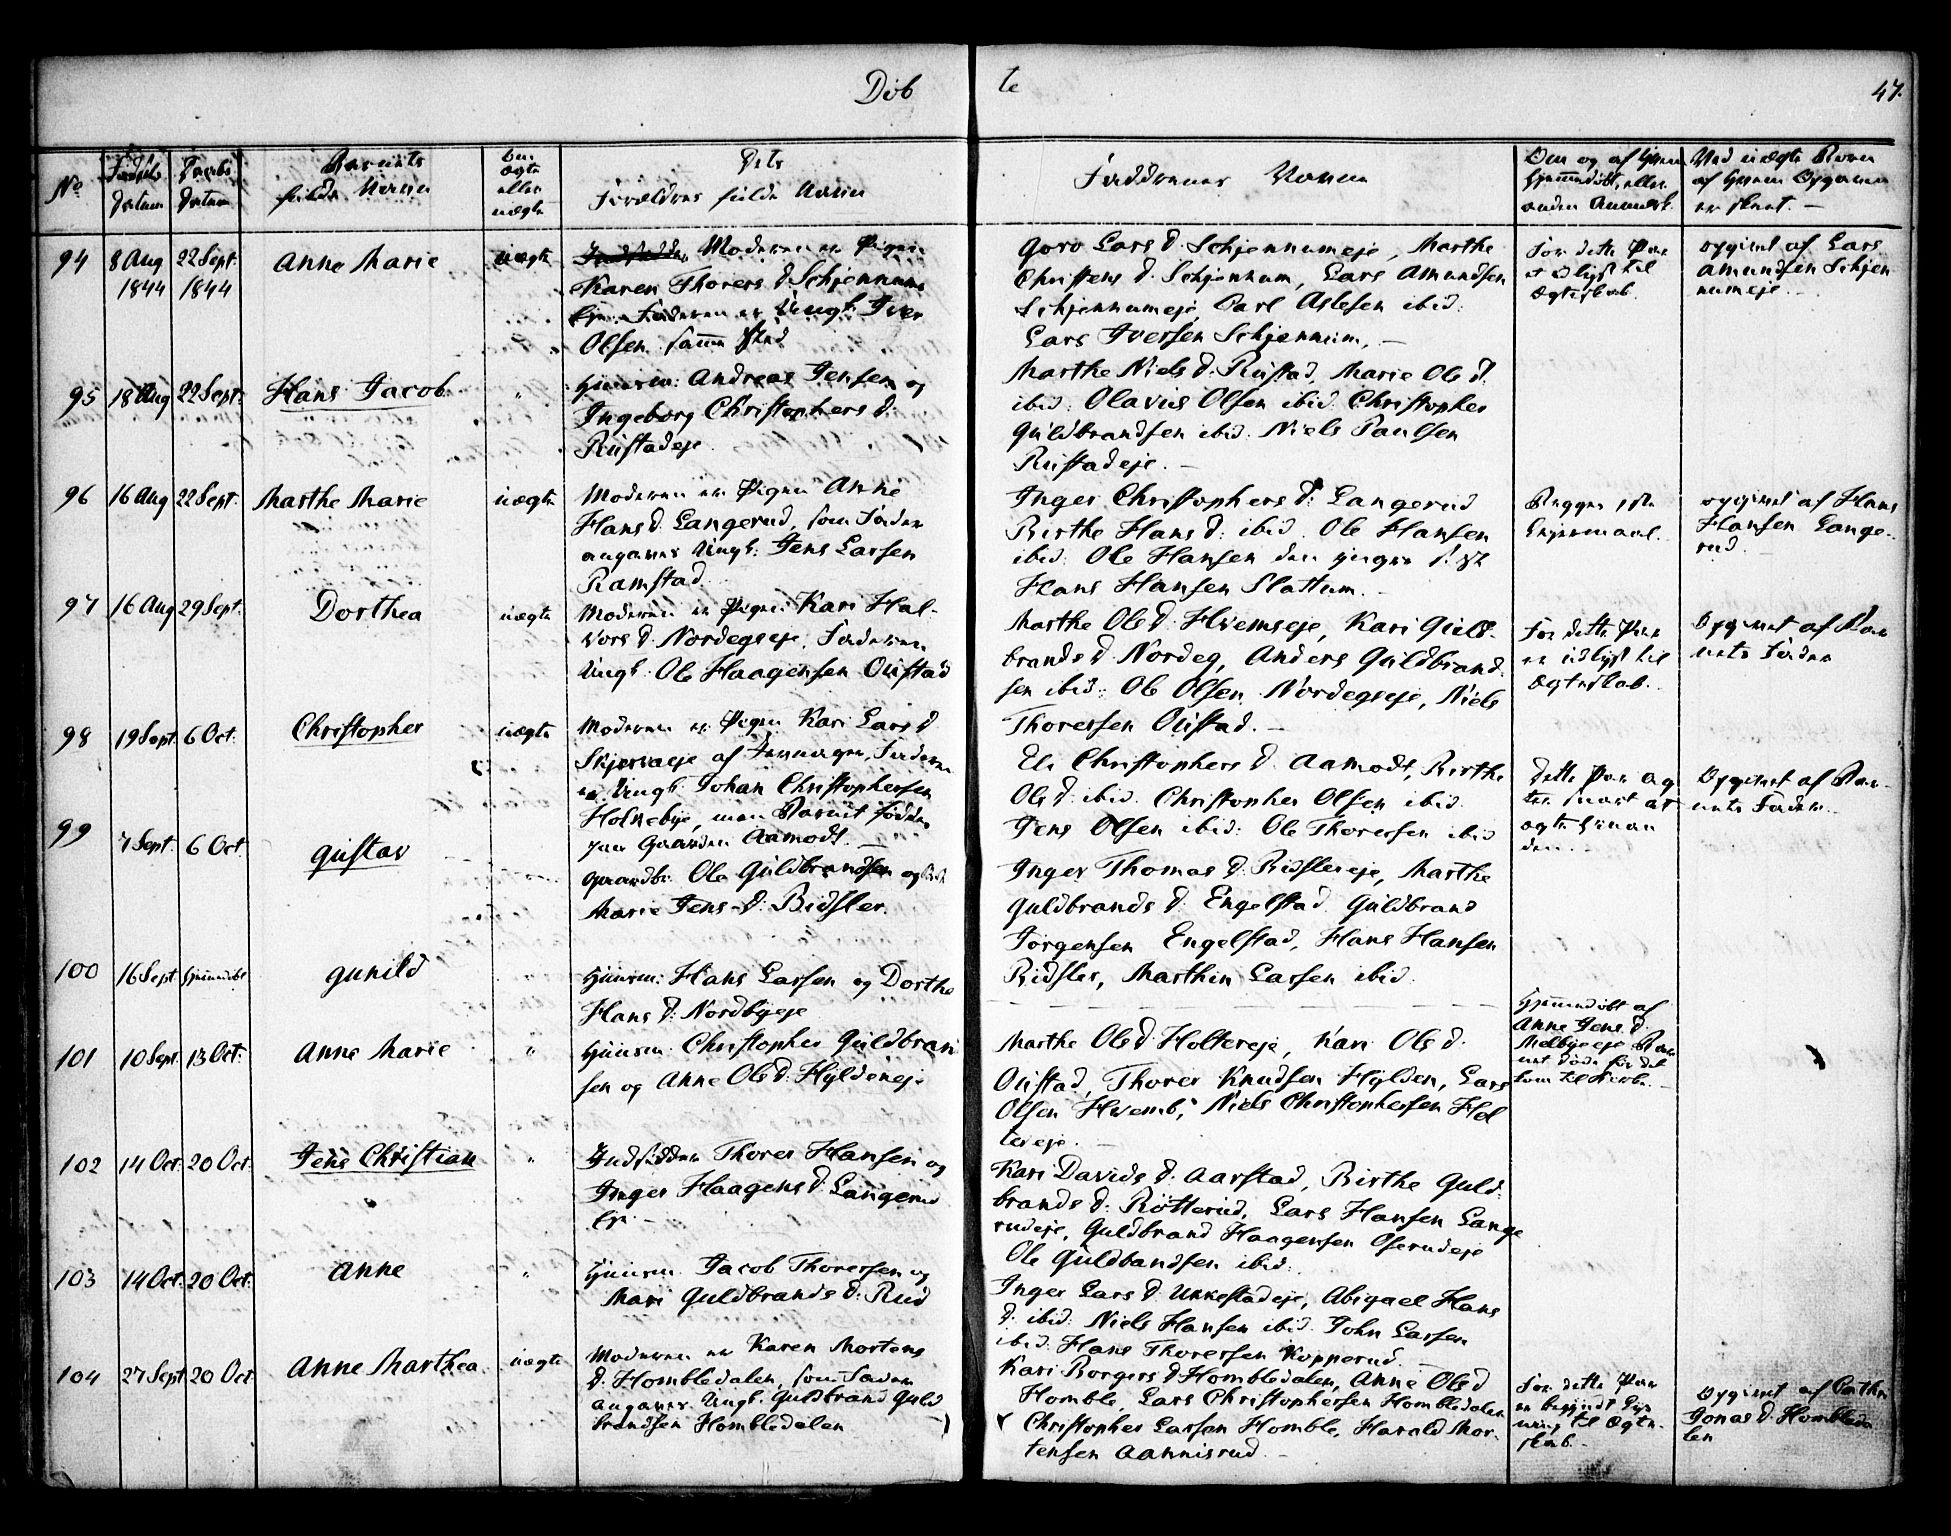 Döb te 47.
No Fødsels Datum Daabs Datum Barnets fulde Navn Om ægte eller uægte Dets Forældres fulde Navn Faddernes Navne Om og af hvem hjemmedöbt, eller anden Anmærk. Ved uægte Børn af hvem Opgaven er skeet. –
94 8 Aug 1844 22 Sept. 1844 Anne Marie uægte
Moderen er Pigen
Karen Thorers D. Schjennums
Eje. Faderen er Ungk. Iver
Olsen samme Sted
Goro Lars D. Schjennumeje, Marthe
Christens D. Schjennum, Lars Amundsen
Schjennumeje, Carl Aslesen ibid.
Lars Iversen Schjennum, –
For dette Par
er lyst til
Ægteskab.
opgivet af Lars
Amundsen Schjen
numeje. –
95 18 Aug 22 Sept. Hans Jacob "
Huusm: Andreas Jensen og
Ingeborg Christophers D:
Rustadeje.
Marthe Niels D. Rustad, Marie Ols D.
ibid: Olavus Olsen ibid. Christopher
Guldbrandsen ibid. Niels Paulsen
Rustadeje. –
96 16 Aug 22 Sept. Marthe Marie uægte
Moderen er Pigen Anne
Hans D. Langerud, som Fader
angaves Ungk: Jens Larsen
Ramstad.
Inger Christophers D: Langerud
Birthe Hans D: ibid. Ole Hansen
ibid. Ole Hansen den yngre
Hans Hansen Slattum. –
Begges 1ste
Leiermaal.
opgivet af Hans
Hansen Lange-
rud. –
97 16 Aug 29 Sept. Dorthea uægte
Moderen er Pigen Kari Hal-
vors D. Nordegseje. Faderen
Ungk. Ole Haagensen Oustad
Marthe Ols D. Hvemseje, Kari Guld-
brands D. Nordeg, Anders Guldbrand-
sen ibid: Ole Olsen Nordegseje, Niels
Thoresen Oustad. –
For dette Par
er udlyst til
Ægteskab.
Opgivet af Bar
nets Fader
98 19 Sept. 6 Oct. Christopher uægte
Moderen er Pigen Kari Lars D
Skjervaeje af Jevnager, Faderen
er Ungk. Johan Christophersen
Holneby, men Barnet födtes
paa Gaarden Aamodt. –
Eli Christophers D. Aamodt, Birthe
Ols D. ibid. Christopher Olsen ibid.
Jens Olsen ibid: Ole Thoresen ibid
Dette Par ag
ter snart at
ægte hinan
den. –
Opgivet af Bar-
nets Fader. –
99 7 Sept. 6 Oct. Gustav
Gaardbr. Ole Guldbrandsen og
Marie Jens D: Bidsler.
Inger Thomas D. Bidslereje, Marthe
Guldbrands D. Engelstad. Guldbrand
Jörgensen Engelstad, Hans Hansen
Bidsler, Marthin Larsen ibid.
100 16 Sept hjemmedöbt Gunild "
Huusm: Hans Larsen og Dorthe
Hans D: Nordbyeje
Hjemmedöbt af
Anne Jens D.
Melbyeeje. Bar
net döde för det
kom til Kirke. –
101 10 Sept. 13 Oct. Anne Marie "
Huusm. Christopher Guldbran
sen og Anne Ols D. Hyldeneje
Marthe Ols D. Holtereje, Kari Ols D.
Oustad, Thorer Knudsen Hylden, Lars
Olsen Hvemb, Niels Christophersen Hol
tereje. –
102 14 Oct. 20 Oct. Jens Christian "
Indsidder Thorer Hansen og
Inger Haagens D. Langerud
Ej. –
Kari Davids D. Aarstad, Birthe Guld-
brands D: Rötterud, Lars Hansen Lange
rudeje, Guldbrand Haagensen Oserudeje
Ole Guldbandsen ibid.
103 14 Oct. 20 Oct. Anne "
Huusm. Jacob Thoresen og
Mari Guldbrands D: Rud
Inger Lars D. Ukkestadeje, Abigael Hans
D. ibid. Niels Hansen ibid. John Larsen
ibid. Hans Thoresen Kopperud. –
104 27 Sept 20 Oct. Anne Marthea uægte
Moderen er Karen Mortens
D. Hombledalen, som Fader
angaves Ungk. Guldbrand Guld
brandsen Hombledalen
Kari Borgers D. Hombledalen, Anne Ols D
Homble, Lars Christophersen Hombledalen
Christopher Larsen Homble, Harald Mor-
tensen Aannisrud. –
For dette Par
er begjyndt Lys
ning til Ægte-
skab. –
Opgivet af Cathr.
Jonas D. Hombleda
len